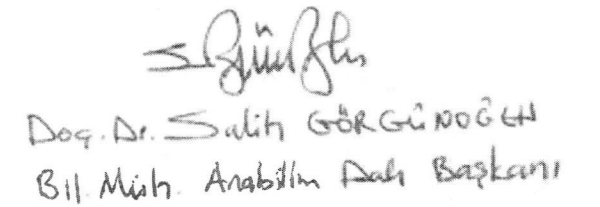 Doç. Dr. Salih GÖRGÜNOĞLU
Bil. Müh. Anabilim Dalı Başkanı